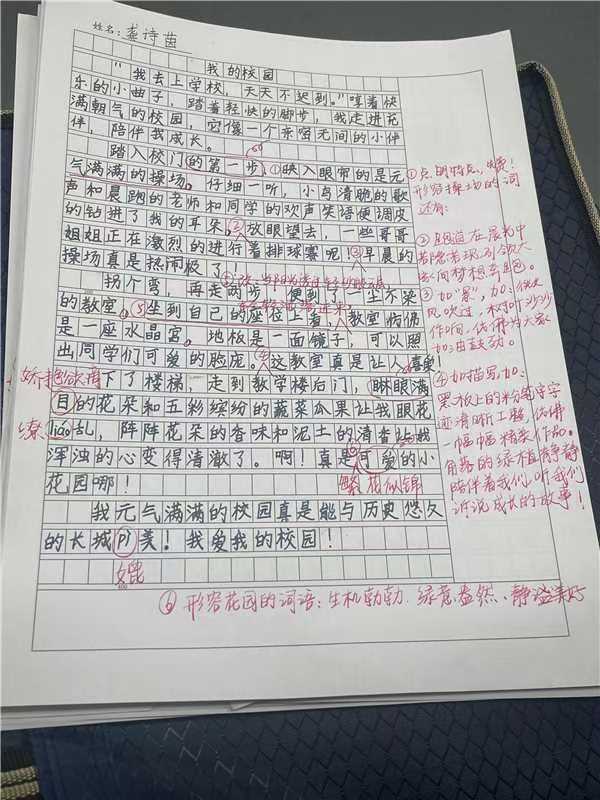 姓名:龚诗茵
我的校园
"我去上学校,天天不迟到。"哼着快
乐的小曲子,踏着轻快的脚步,我走进花
满朝气的校园,它像一个亲密无间的小伙
伴,陪伴我成长。
踏入校门的第一步,①映入眼帘的是元
气满满的操场。仔细一听,小鸟清脆的歌
声和晨跑的老师和同学的欢声笑语便调皮
的钻进了我的耳朵,②放眼望去,一些哥哥
姐姐正在激烈的进行着排球赛呢!③早晨的
操场真是热闹极了
拐个弯,再走两步,便到了一尘不染
的教室。⑤坐到自己的座位上看,教室仿佛
是一座水晶宫。地板是一面镜子,可以照
出同学们可爱的脸庞。④这教室真是让人喜爱
娇艳欲滴
下了楼梯,走到教学楼后门,琳琅满
目的花朵和五彩缤纷的蔬菜瓜果让我眼花
缭
liáo乱,阵阵花朵的香味和泥土的清香让我
浑浊的心变得清澈了。啊!真是可爱的小
花园哪!
⑥
繁花似锦
我元气满满的校园真是能与历史悠久
的长城pì美!我爱我的校园!
媲
①点明特点,
形容操场的词
还有:
②跑道在晨光中
③加"景",加:
风吹过,树叶沙沙
作响,仿佛为大家
加油鼓动。
④加描写,加:
黑板上的粉笔字字
迹清晰工整,仿佛
一幅幅精美作品。
角落的绿植静静
陪伴着我们,听我们
诉说成长的故事!
⑥形容花园的词语:生机勃勃、绿意盎然、静谧美好